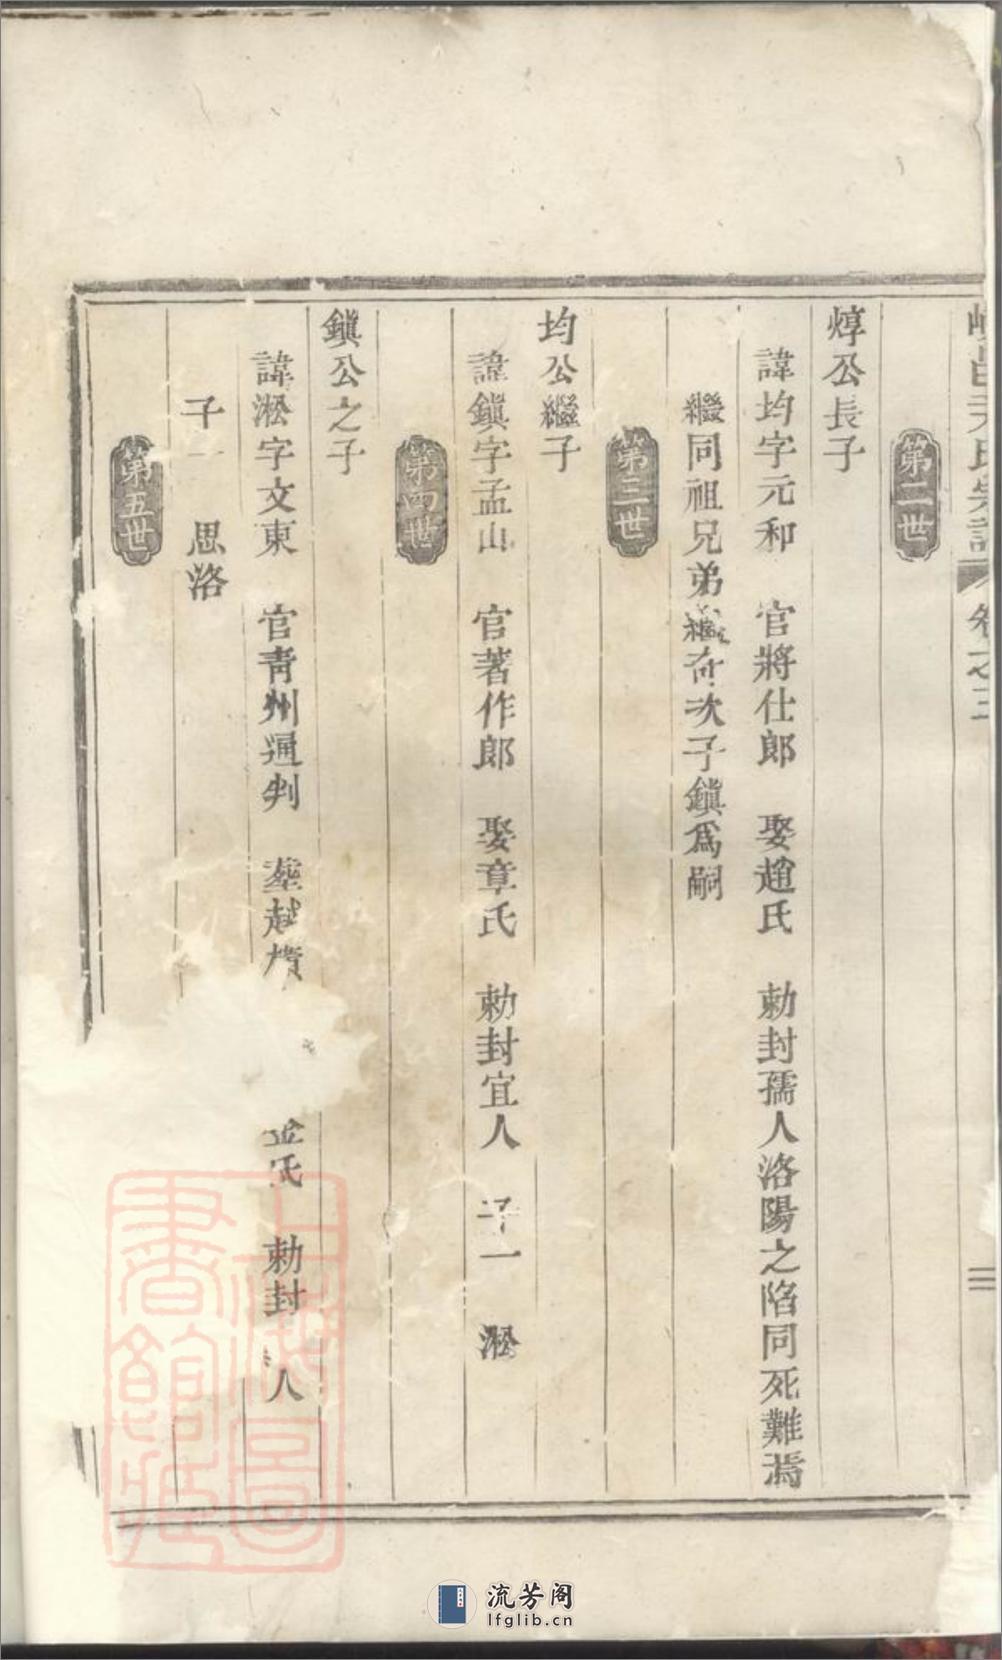 邑尹氏宗譜 卷之三 三
第二世
焞公長子
諱均字元和 官將仕郎 娶趙氏 勅封孺人洛陽之陷同死難焉
繼同祖兄弟 次子鎭爲嗣
第三世
均公繼子
諱鎭字孟山 官著作郎 娶章氏 勅封宜人 子一 淞
第四世
鎭公之子
諱淞字文東 官靑州通判 塟越 氏 勅封 人
子一 思洛
第五世
上海圖書館藏
流芳阁
lfglib.cn